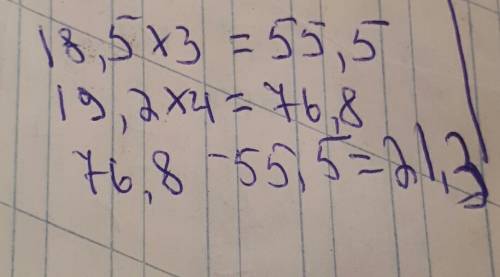 18,5×3 = 55,5
19,2×4=76,8
76,8-55,5=21,3